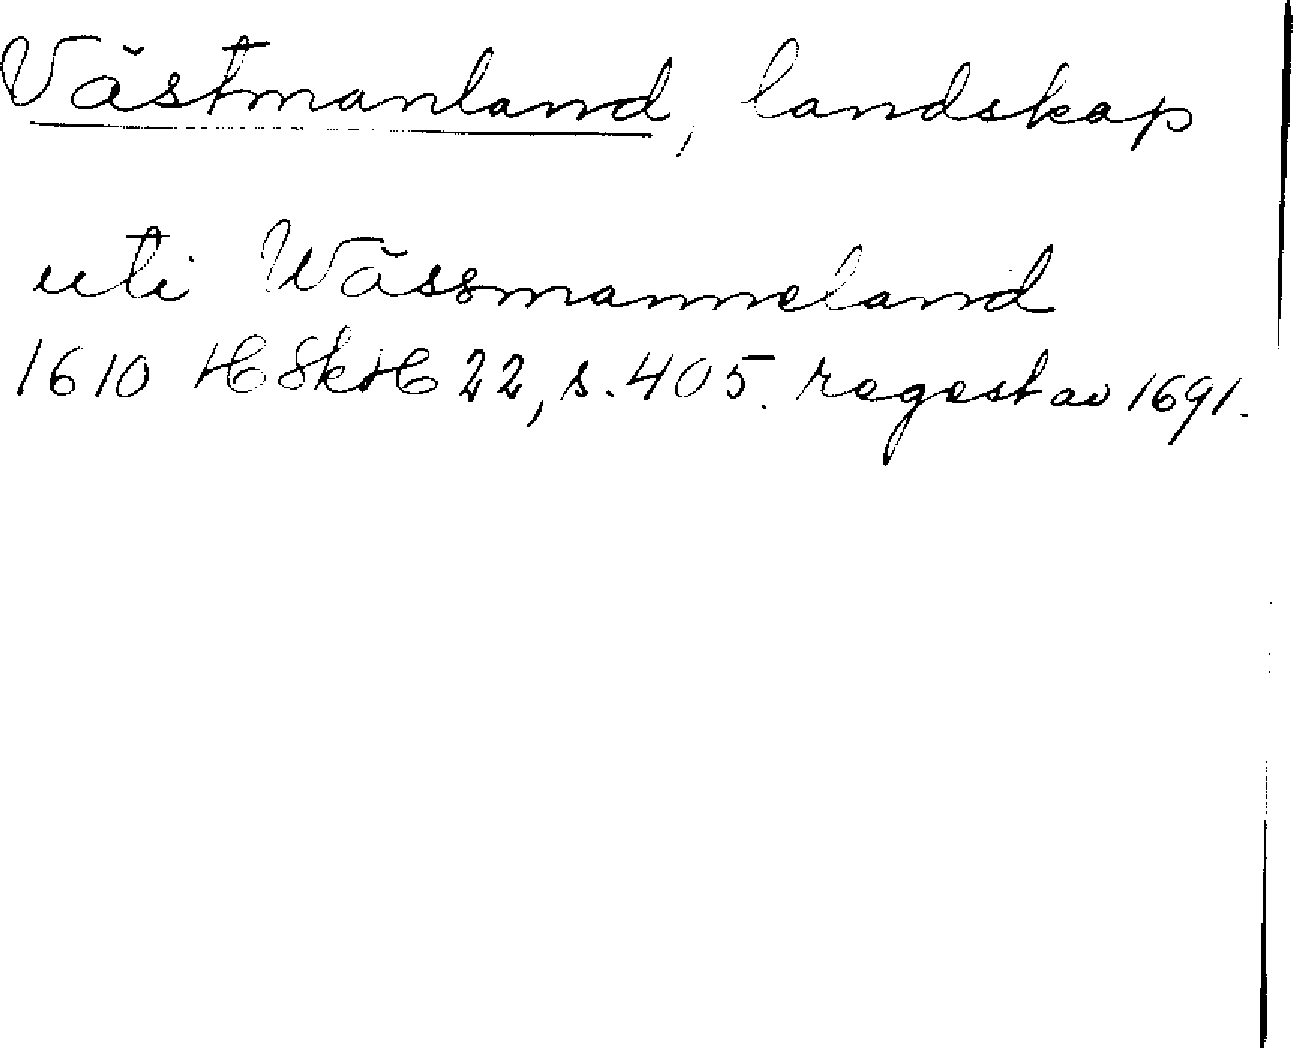 Västmanland, landskap
uti Wässmanneland
1610 HSkH 22, s. 405. regest av 1691.